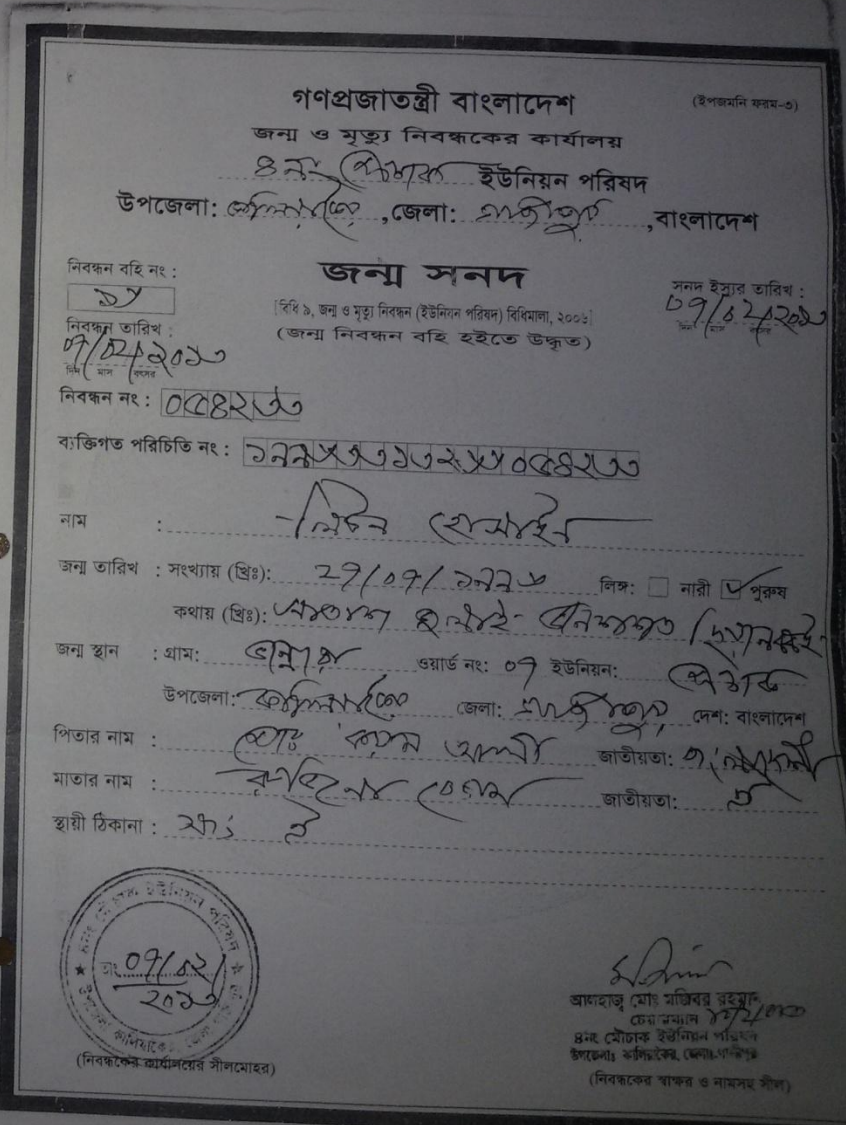 গণপ্রজাতন্ত্রী বাংলাদেশ
জন্ম ও মৃত্যু নিবন্ধকের কার্যালয়
৪নং মৌচাক ইউনিয়ন পরিষদ
উপজেলা: কালিয়াকৈর, জেলা: গাজীপুর, বাংলাদেশ
নিবন্ধন বহি নং :
জন্ম সনদ
সনদ ইস্যুর তারিখ :
[বিধি ৯, জন্ম ও মৃত্যু নিবন্ধন (ইউনিয়ন পরিষদ) বিধিমালা, ২০০৬]
(জন্ম নিবন্ধন বহি হইতে উদ্ধৃত)
০৭/০২/২০১৩
নিবন্ধন তারিখ :
০৭/০২/২০১৩
দিন মাস বৎসর
নিবন্ধন নং : ০৫৪২৩৩
ব্যক্তিগত পরিচিতি নং :
নাম : লিটন হোসাইন
জন্ম তারিখ : সংখ্যায় (খ্রিঃ): ২৭/০৭/১৯৯৬ লিঙ্গ: নারী পুরুষ
কথায় (খ্রিঃ): সাতাশ জুলাই উনিশশত ছিয়ানব্বই
জন্ম স্থান : গ্রাম: ওয়ার্ড নং: ০৭ ইউনিয়ন: মৌচাক
উপজেলা: কালিয়াকৈর জেলা: গাজীপুর দেশ: বাংলাদেশ
পিতার নাম : মোঃ আলী জাতীয়তা: বাংলাদেশী
মাতার নাম : বেগম জাতীয়তা: ঐ
স্থায়ী ঠিকানা : সাং ঐ
৪নং মৌচাক ইউনিয়ন পরিষদ
তাং ০৭/০২/
২০১৩
(নিবন্ধকের কার্যালয়ের সীলমোহর)
আলহাজ্ব মোঃ রহমান
চেয়ারম্যান
৪নং মৌচাক ইউনিয়ন পরিষদ
উপজেলাঃ কালিয়াকৈর, জেলাঃ গাজীপুর
(নিবন্ধকের স্বাক্ষর ও নামসহ সীল)